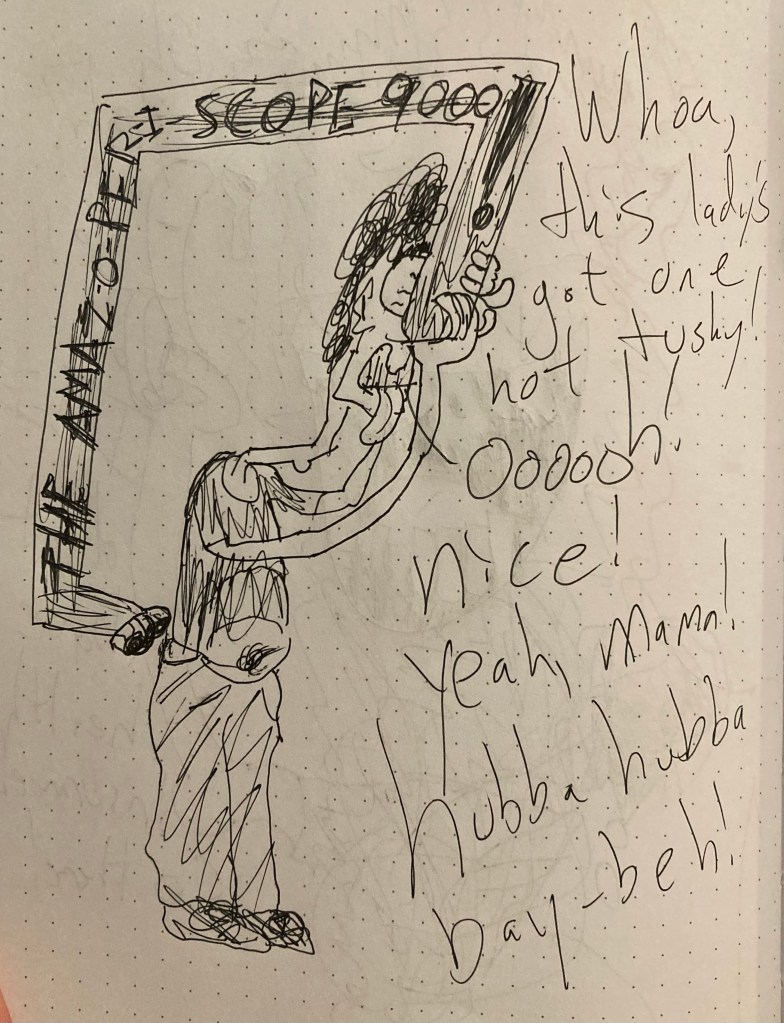 THE AMAZ-O-PERI-SCOPE 9000!
Whoa,
this lady's
got one
hot tushy!
Oooooh!
nice!
Yeah, Mama!
hubba hubba
bay-beh!